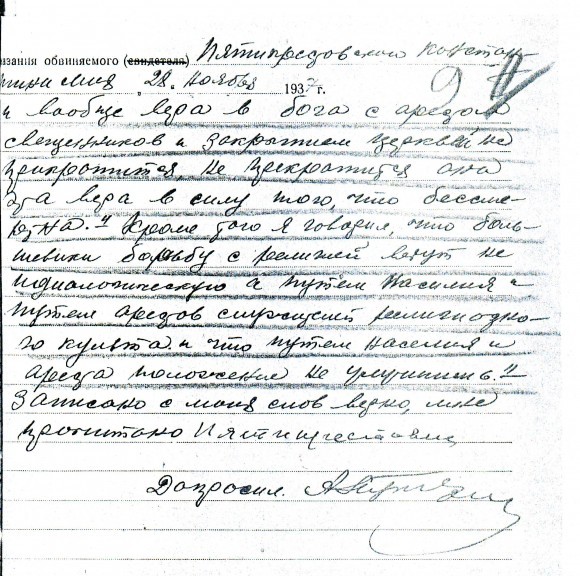 азания обвиняемого (свидетеля) Пятикрестовского Констан-
28 ноября 1937 г.
и вообще вера в бога с арестом
священников и закрытием церквей не
прекратится не прекратится она
эта вера в силу того, что бессме-
ртна." Кроме того я говорил, что боль-
шевики борьбу с религией ведут не
идиологическую а путем насилия и
путем арестов служителей религиозно-
го культа и что путем насилия и
ареста положение не улучшить."
Записано с моих слов верно, мне
прочитано Пятикрестовский
Допросил.